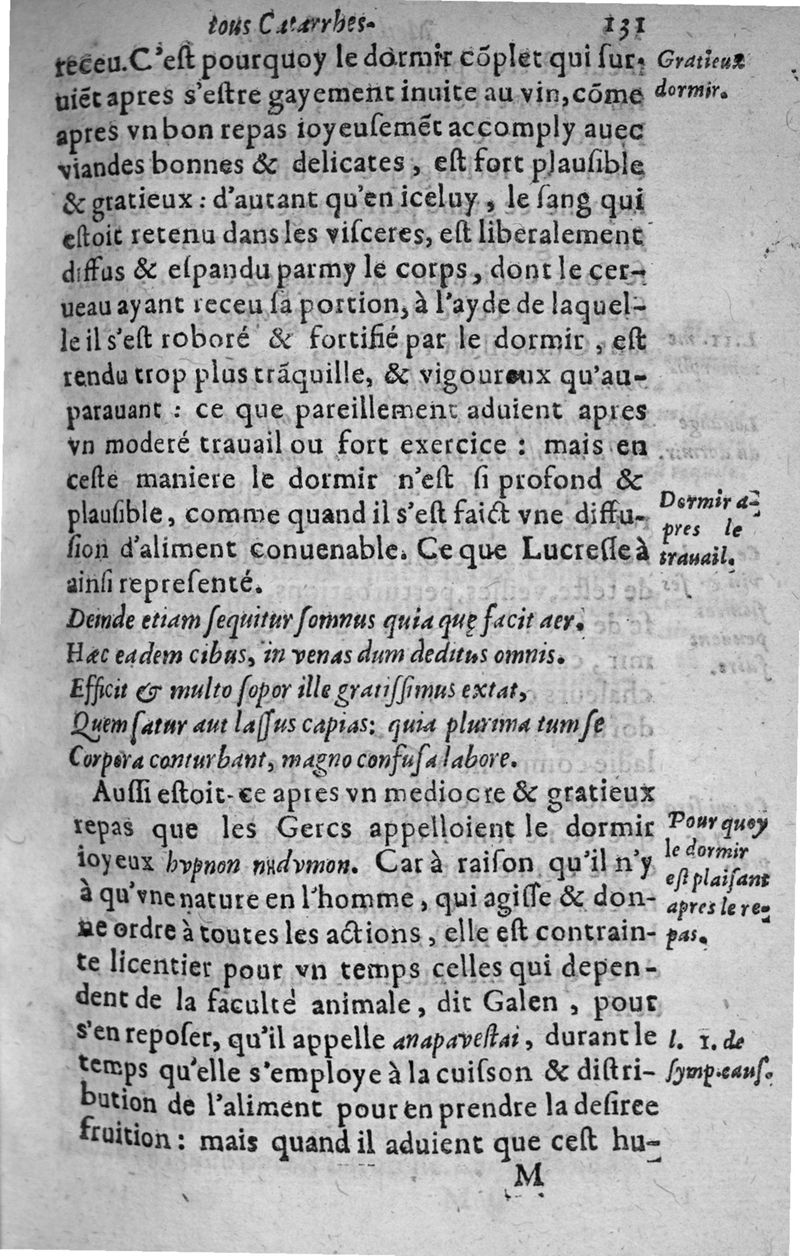 tous Catarrhes. 131
receu. C'eſt pourquoy le dormir cõplet qui ſur-
uiẽt apres s'eſtre gayement inuite au vin, cõme
apres vn bon repas ioyeuſemẽt accomply auec
viandes bonnes & delicates, eſt fort plauſible
& gratieux : d'autant qu'en iceluy, le ſang qui
eſtoit retenu dans les viſceres, eſt liberalement
diffus & eſpandu parmy le corps, dont le cer-
ueau ayant receu ſa portion, à l'ayde de laquel-
le il s'eſt roboré & fortifié par le dormir, eſt
rendu trop plus trãquille, & vigoureux qu'au-
parauant : ce que pareillement aduient apres
vn moderé trauail ou fort exercice : mais en
ceſte maniere le dormir n'eſt ſi profond &
plauſible, comme quand il s'eſt faict vne diffu-
ſion d'aliment conuenable. Ce que Lucreſſe à
ainſi repreſenté.
Deinde etiam ſequitur ſomnus quia quę facit aer.
Hæc eadem cibus, in venas dum deditus omnis.
Efficit & multo ſopor ille gratiſſimus extat,
Quem ſatur aut laſſus capias: quia plurima tum ſe
Corpora conturbant, magno confuſa labore.
Auſſi eſtoit-ce apres vn mediocre & gratieux
repas que les Gercs appelloient le dormir
ioyeux hypnon nıdvmon. Car à raiſon qu'il n'y
à qu'vne nature en l'homme, qui agiſſe & don-
ne ordre à toutes les actions, elle eſt contrain-
te licentier pour vn temps celles qui depen-
dent de la faculté animale, dit Galen, pour
s'en repoſer, qu'il appelle anapaveſtai, durant le
temps qu'elle s'employe à la cuiſson & diſtri-
bution de l'aliment pour en prendre la deſiree
fruition : mais quand il aduient que ceſt hu-
M
Gratieux
dormir.
Dormir a-
pres le
trauail.
Pour quoy
le dormir
eſt plaiſant
apres le re-
pas.
l. 1. de
ſymp. cauſ.